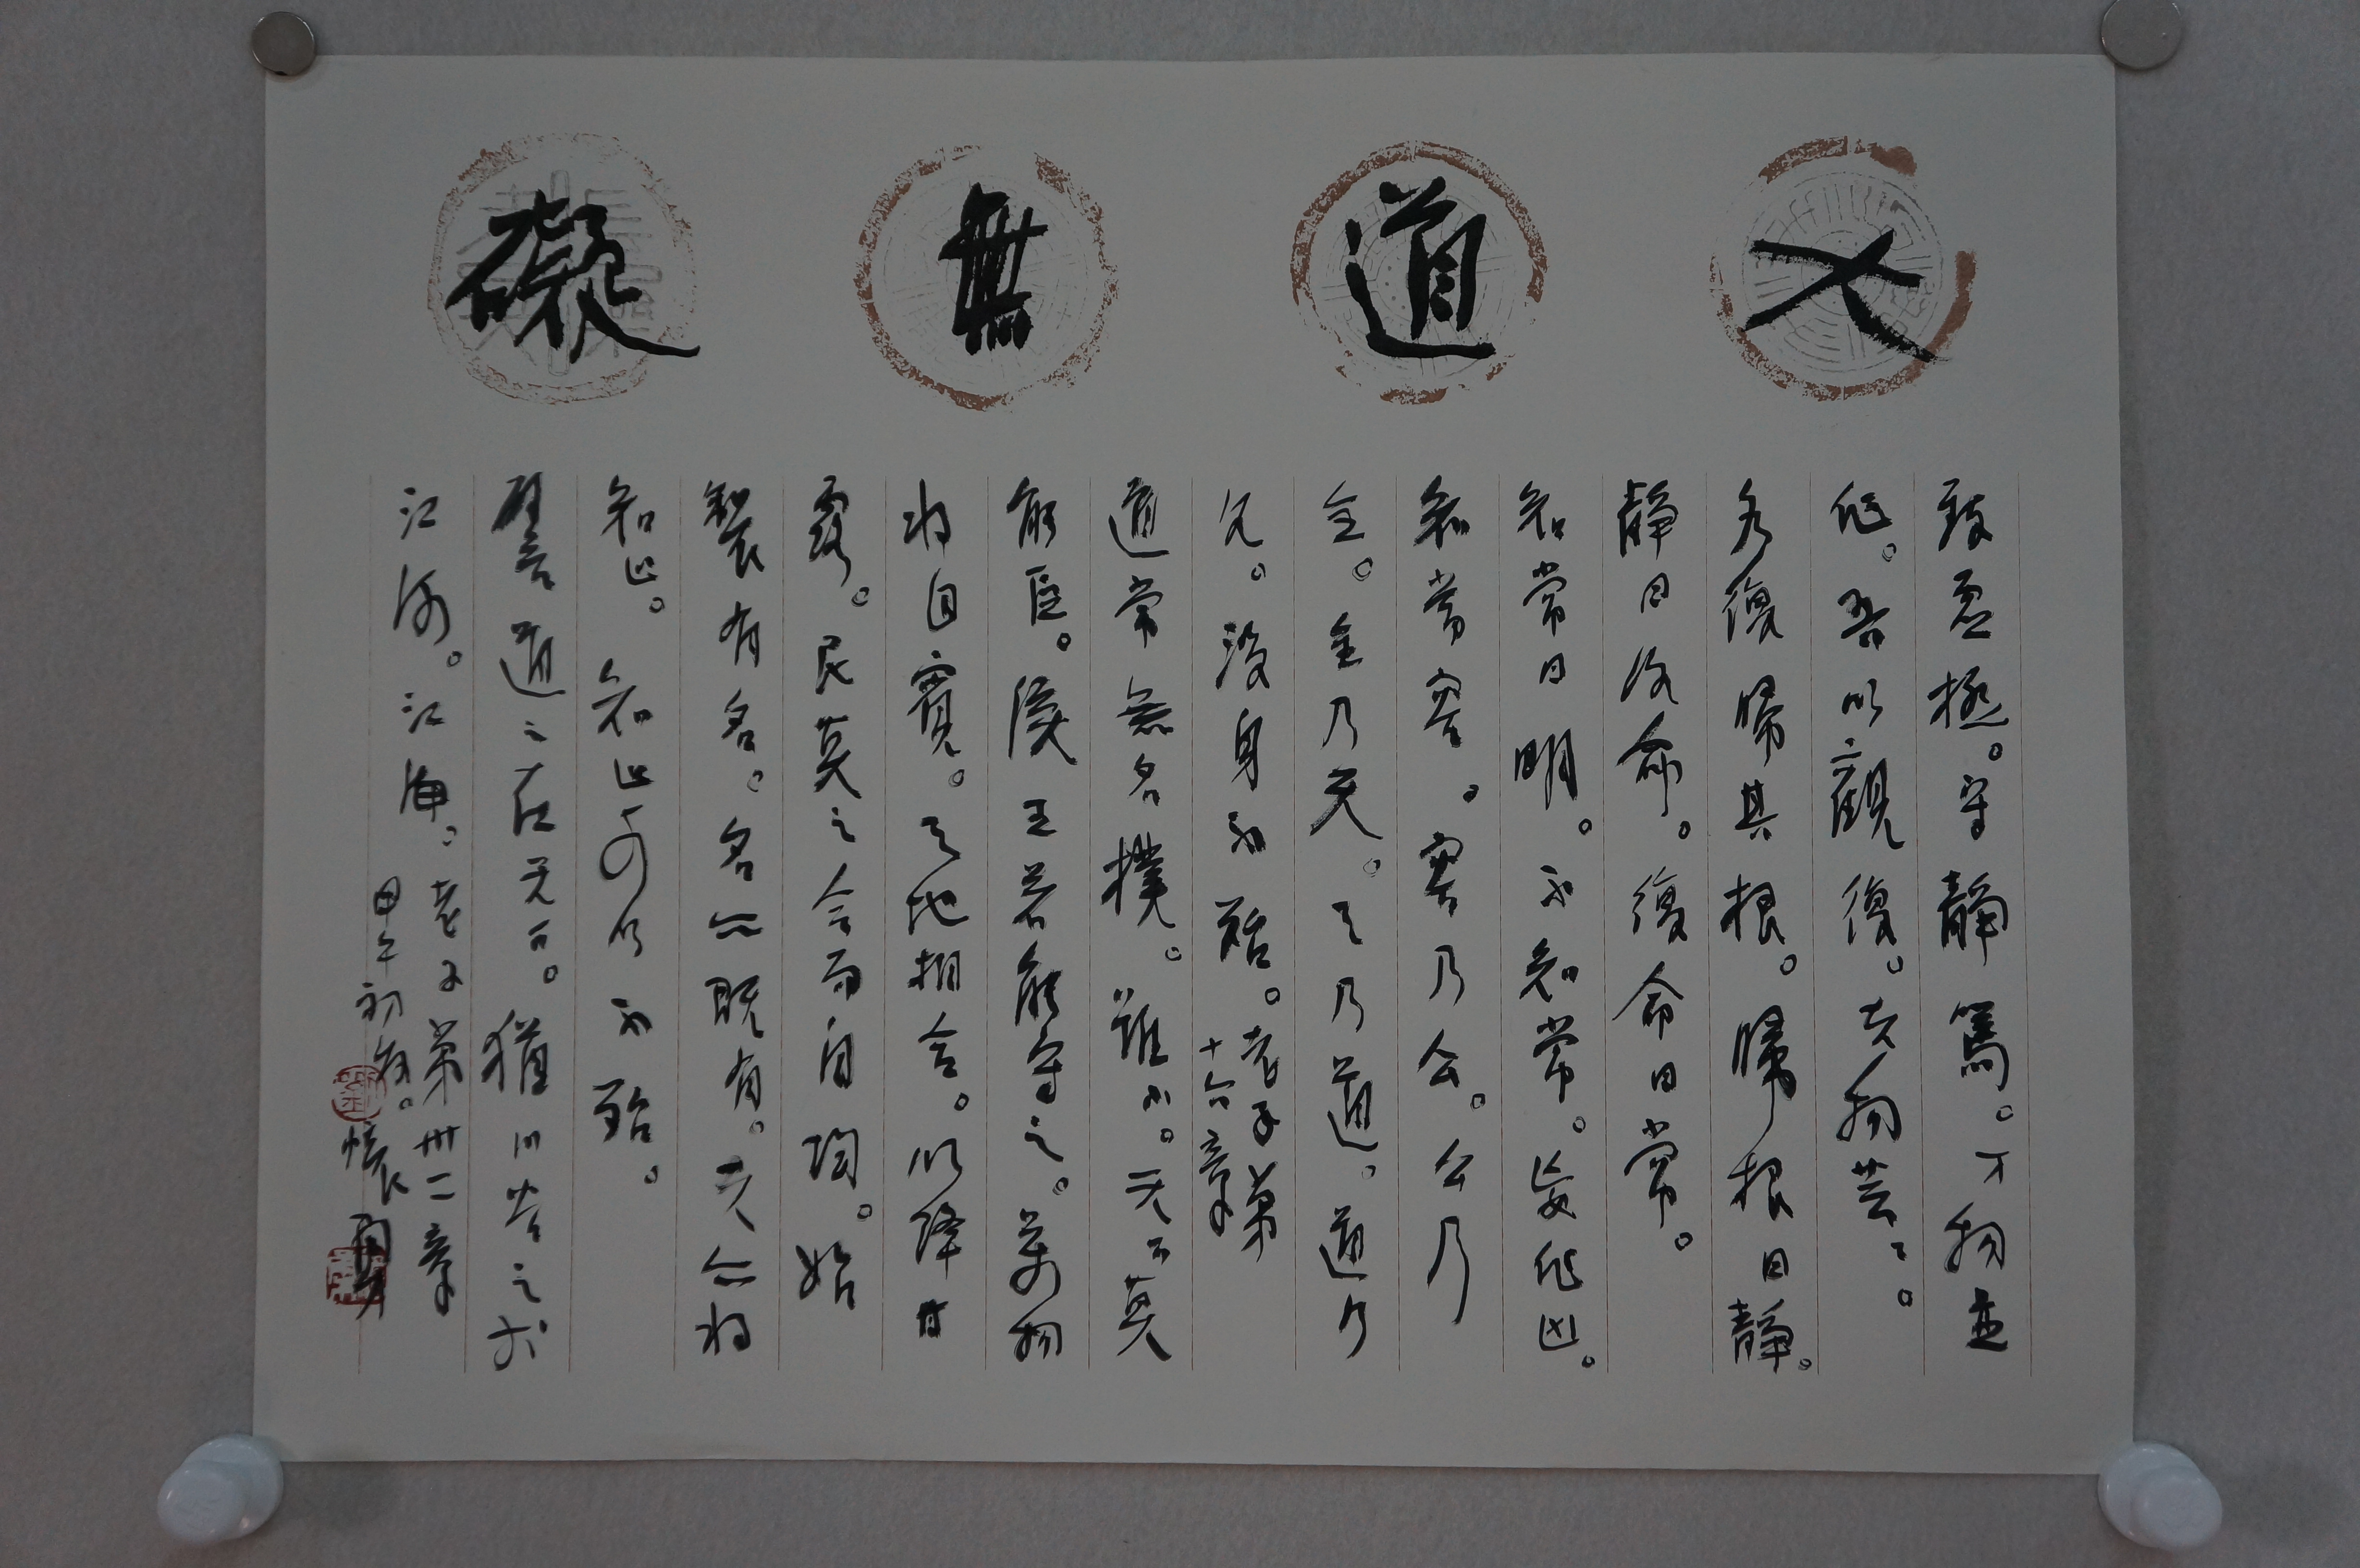 大道無礙
致虛極。守靜篤。万物並
作。吾以觀復。夫物芸々。
各復歸其根。歸根曰靜。
靜曰復命。復命曰常。
知常曰明。不知常。妄作凶。
知常容。容乃公。公乃
全。全乃天。天乃道。道乃
久。沒身不殆。老子第
十六章
道常無名樸。雖小。天下莫
能臣。侯王若能守之。萬物
將自賓。天地相合。以降甘
露。民莫之令而自均。始
製有名。名亦既有。夫亦將
知止。知止可以不殆。
譬道之在天下。猶川谷之於
江海。江海。老子第卅二章
甲午初夏。懷勇